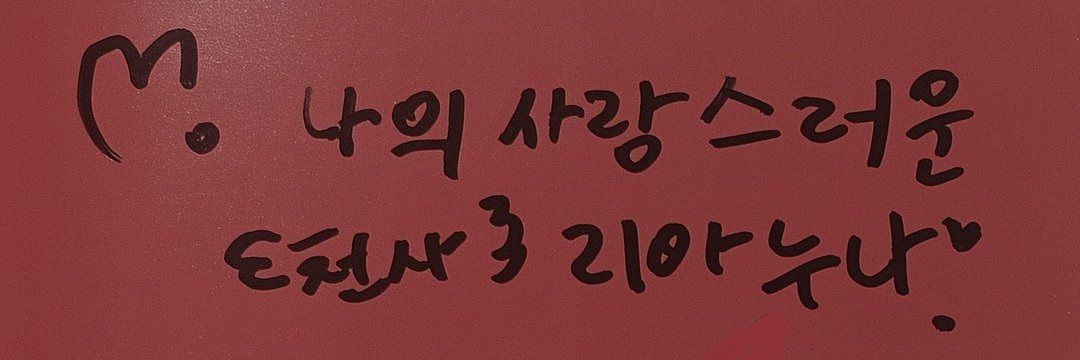 나의 사랑스러운
ε천사з 리아누나♥.